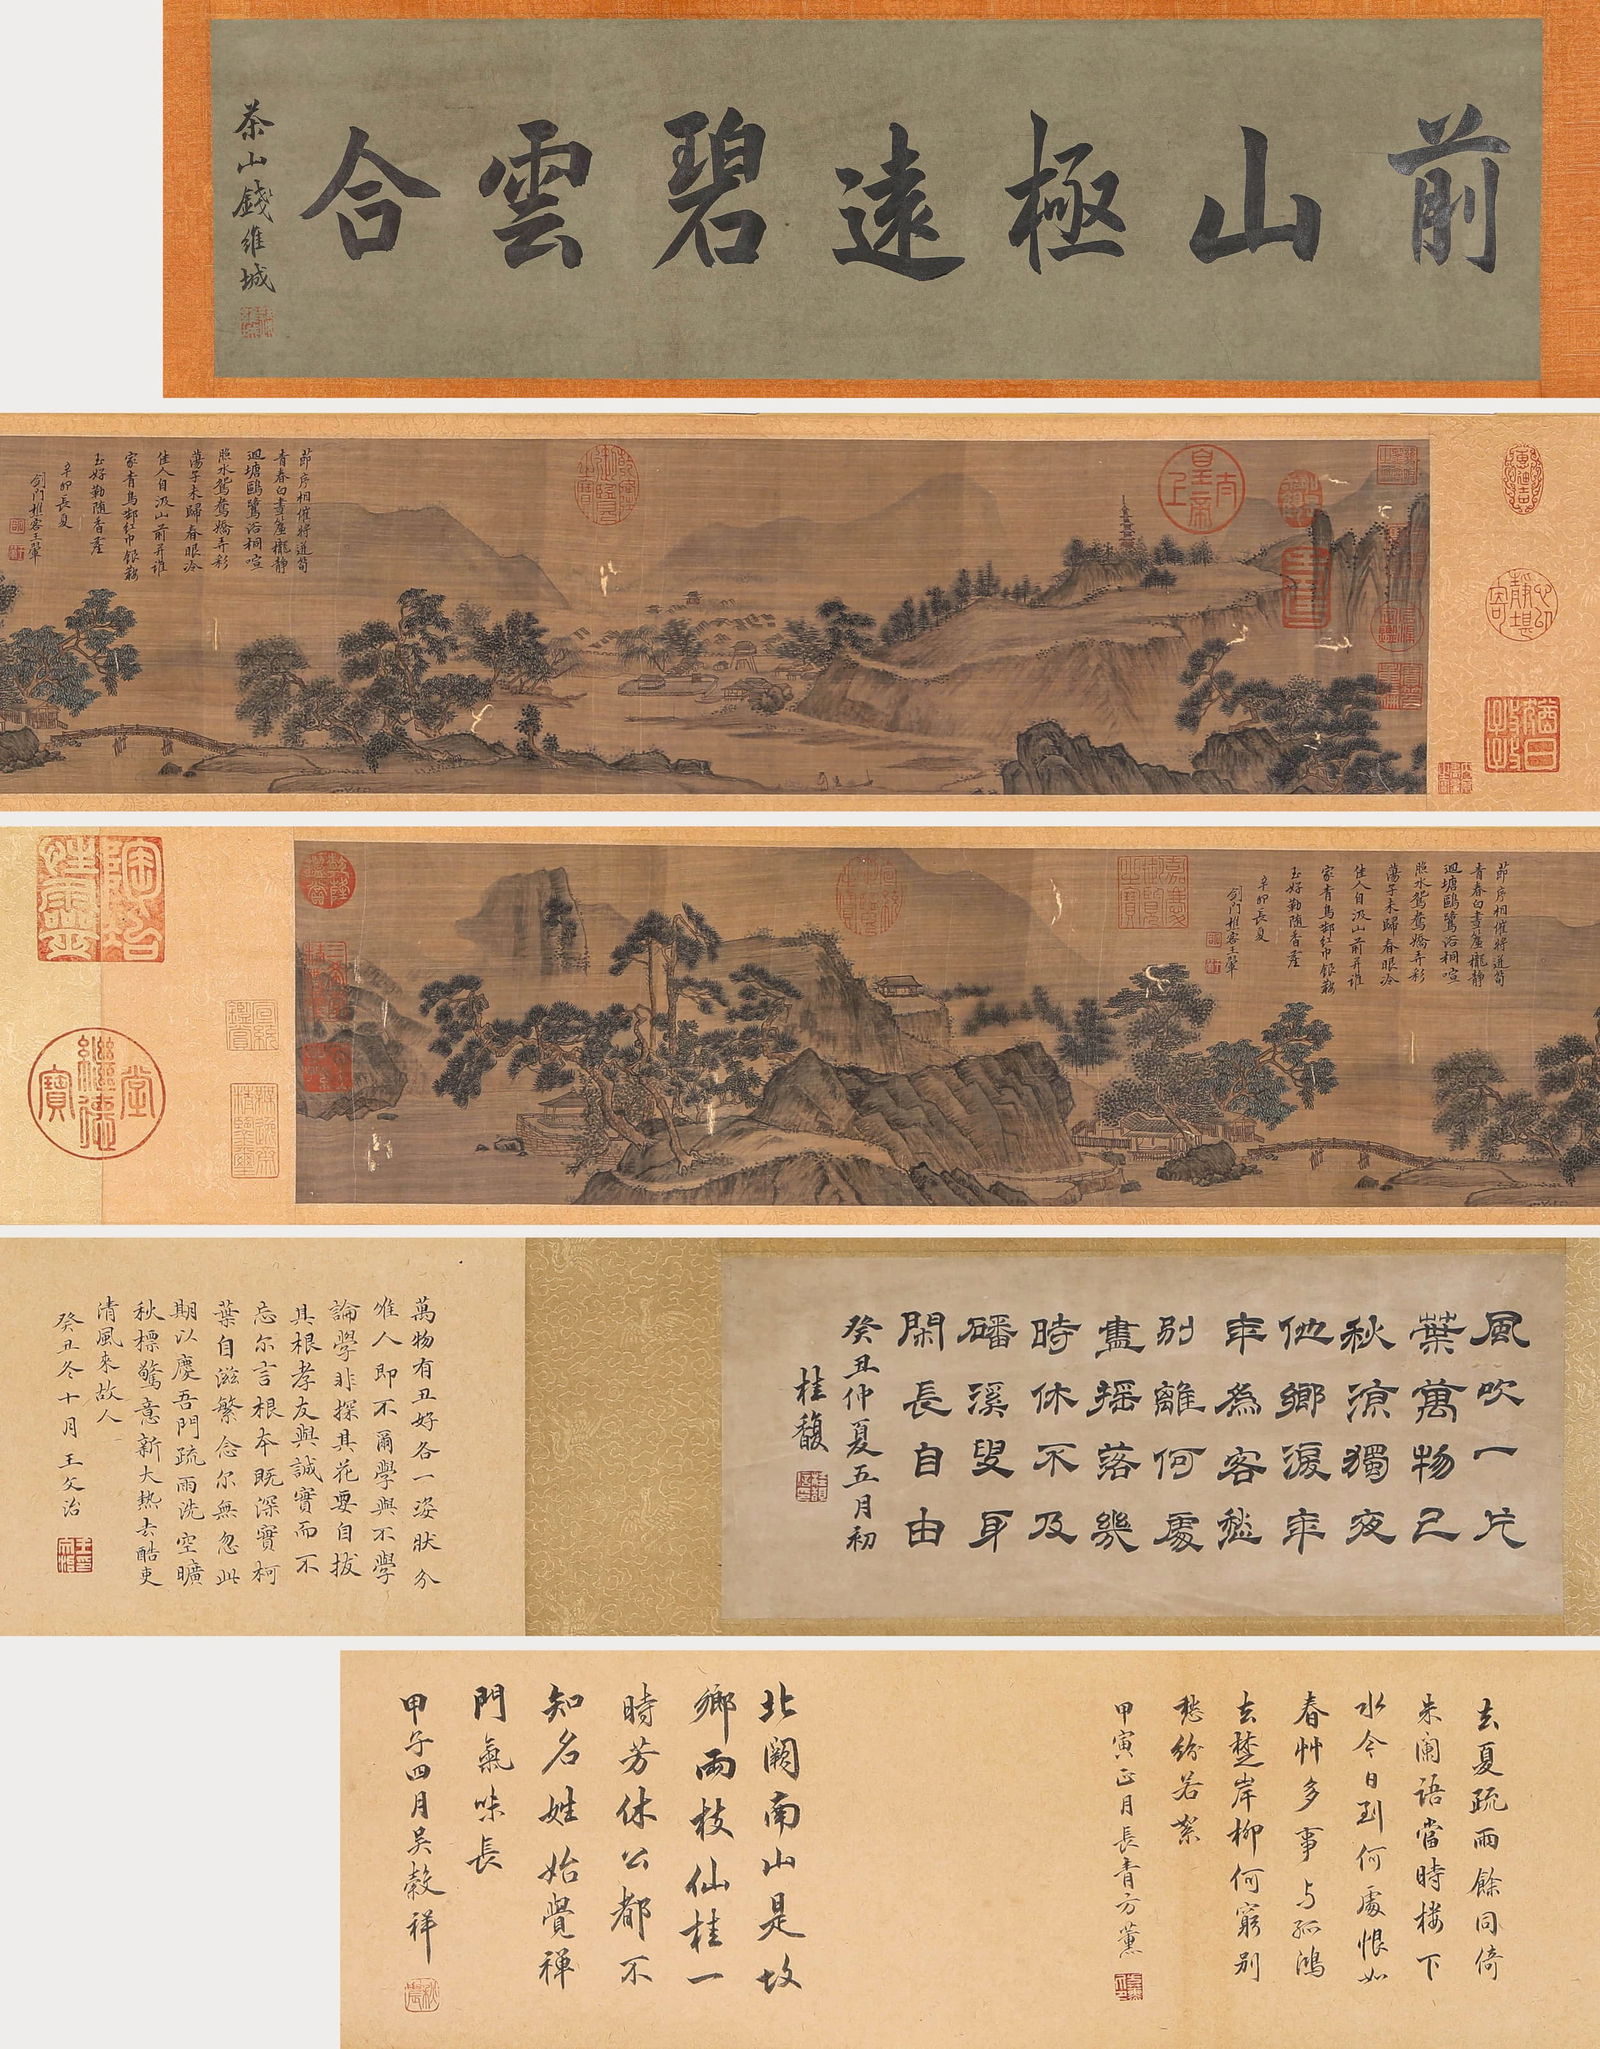 前山極遠碧雲合
茶山錢維城
節序相催將道筍
青春白晝簾櫳靜
迴塘鷗鷺浴桐喧
照水鴛鴦嬌弄彩
蕩子未歸春眼冷
佳人自汲山前井誰
家青鳥部紅巾銀鞍
玉好勤随香塵
辛卯長夏
劍門樵客王翬
節序相催將道筍
青春白晝簾櫳靜
迴塘鷗鷺浴桐喧
照水鴛鴦嬌弄彩
蕩子未歸春眼冷
佳人自汲山前井誰
家青鳥部紅巾銀鞍
玉好勤随香塵
辛卯長夏
劍門樵客王翬
風吹一片
葉萬物已
秋涼獨夜
他鄉淚年
年為客愁
別離何處
盡搖落幾
時休不及
磻溪叟身
閑長自由
癸丑仲夏五月初
桂馥
萬物有丑好各一姿狀分
唯人即不爾學與不學
論學非探其花要自拔
其根孝友與誠實而不
忘尔言根本既深實柯
葉自滋繁念尔無忽此
期以慶吾門疏雨洗空曠
秋標驚意新大熱去酷吏
清風来故人
癸丑冬十月 王文治
去夏疏雨餘同倚
朱闌語當時楼下
水今日到何處恨如
春艸多事与孤鴻
去楚岸柳何窮别
愁紛若絮
甲寅正月長青方薰
北闕南山是故
鄉兩枝仙桂一
時芳休公都不
知名姓始覺禪
門氣味長
甲子四月吴榖祥